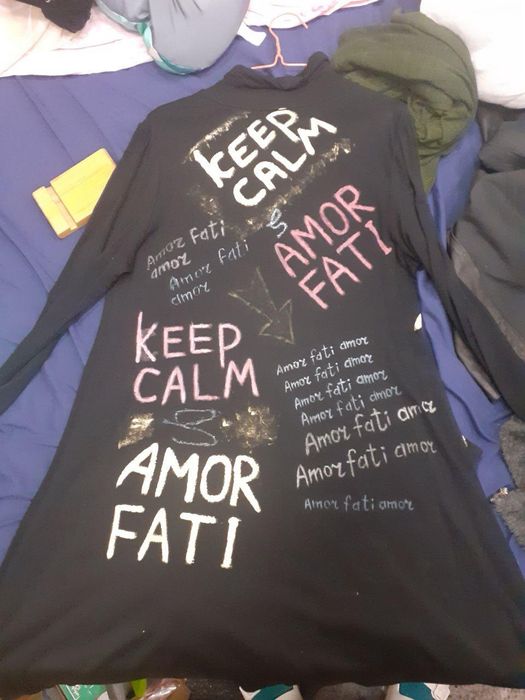 KEEP
CALM
&
AMOR
FATI
Amor fati
amor
Amor fati
amor
KEEP
CALM
&
AMOR
FATI
Amor fati amor
Amor fati amor
Amor fati amor
Amor fati amor
Amor fati amor
Amor fati amor
Amor fati amor